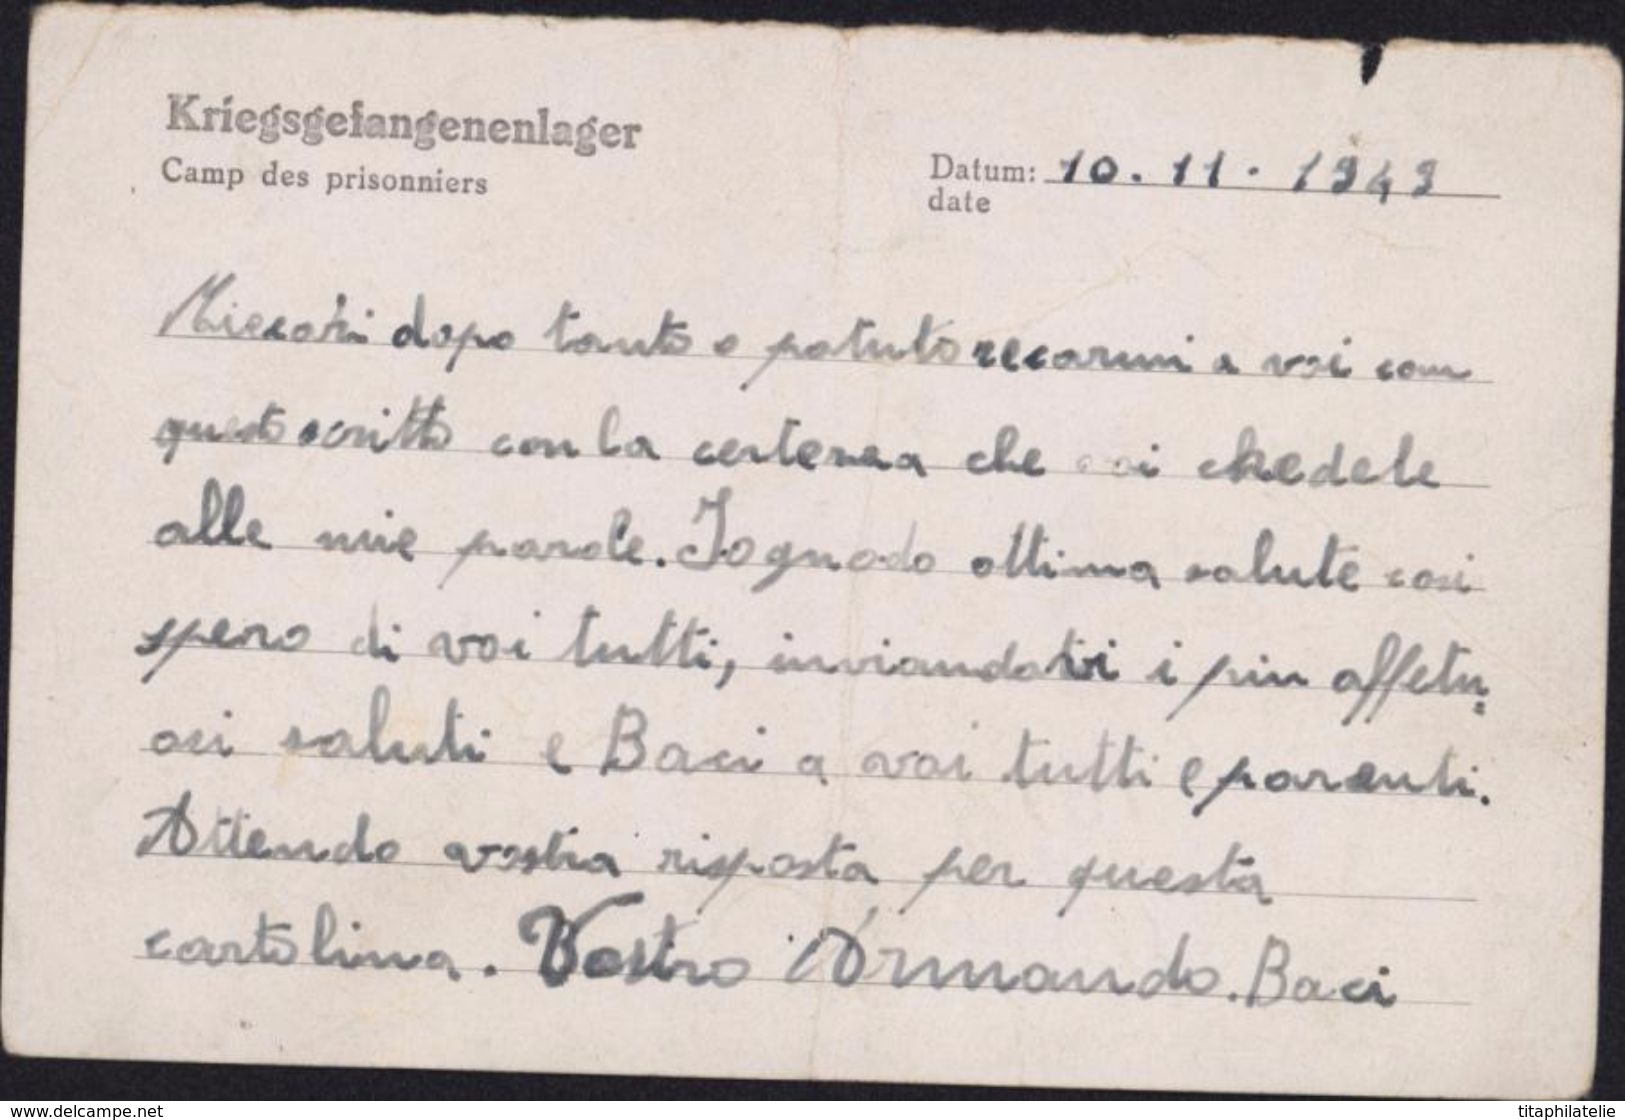 Kriegsgefangenenlager
Camp des prisonniers
Datum: 10.11.1943
date
Miecari dopo tanto o potuto recarmi a voi con
questo scritto con la certenza che voi chedete
alle mie parole. Io gnodo ottima salute cosi
spero di voi tutti, inviandovi i piu affetu=
osi saluti e Baci a voi tutti e parenti.
Attendo vostra risposta per questa
cartolina. Vostro Armando. Baci
www.delcampe.net
titaphilatelie